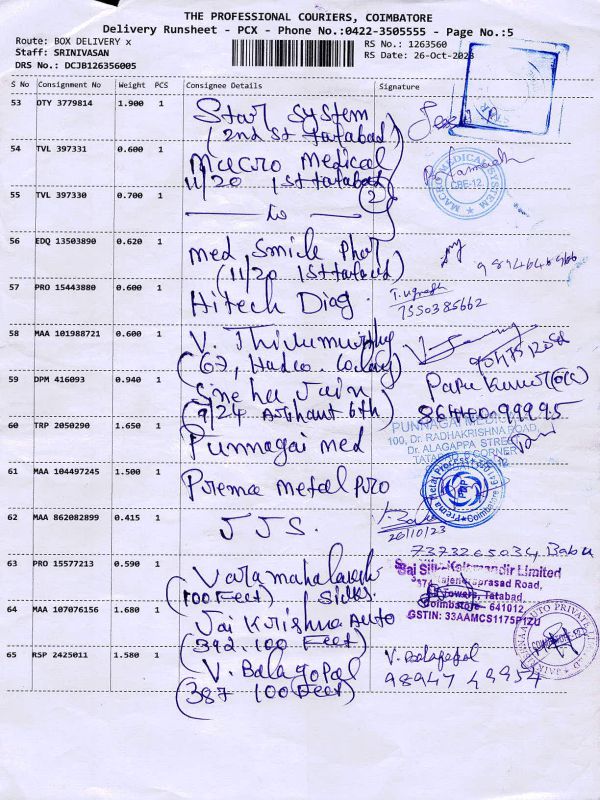 THE PROFESSIONAL COURIERS, COIMBATORE
Delivery Runsheet - PCX - Phone No.:0422-3505555 - Page No.:5
Route: BOX DELIVERY x
RS No.: 1263560
Staff: SRINIVASAN
RS Date: 26-Oct-2023
DRS No.: DCJB126356005
S No Consignment No Weight PCS Consignee Details Signature
53 DTY 3779814 1.900 1 Star System
(2nd St Tatabad)
54 TVL 397331 0.600 1 Macro Medical
11/20 1st tatabad
MACRO MEDICAL SYSTEM
CBE-12
55 TVL 397330 0.700 1 2
56 EDQ 13503890 0.620 1 Med Smile Phar
(11/20 1st tatabad)
57 PRO 15443880 0.600 1 Hitech Diag.
7550385662
58 MAA 101988721 0.600 1 V. Thirumurthy
(67, Hudco Colony)
59 DPM 416093 0.940 1 Sneha Jain Papu Kumar
(9/24 Arihant 6th) 86440 99995
60 TRP 2050290 1.650 1 Punnagai med
PUNNAGAI MEDICAL
100, Dr. RADHAKRISHNA ROAD,
Dr. ALAGAPPA STREET
TATABAD CORNER
61 MAA 104497245 1.500 1 Prema Metal Pro
Prema Metal Process
Coimbatore
62 MAA 862082899 0.415 1 JJS.
26/10/23
7373265034 Babu
63 PRO 15577213 0.590 1 Varamahalaxmi
(100 Feet) Silks.
Sai Silks Kalamandir Limited
Rajendraprasad Road,
Towers, Tatabad,
Coimbatore - 641012,
GSTIN: 33AAMCS1175P1ZU
64 MAA 107076156 1.680 1 Jai Krishna Auto
(392. 100 Feet)
65 RSP 2425011 1.580 1 V. Balagopal V. Balagopal
(387 100 Feet) 98947 49954